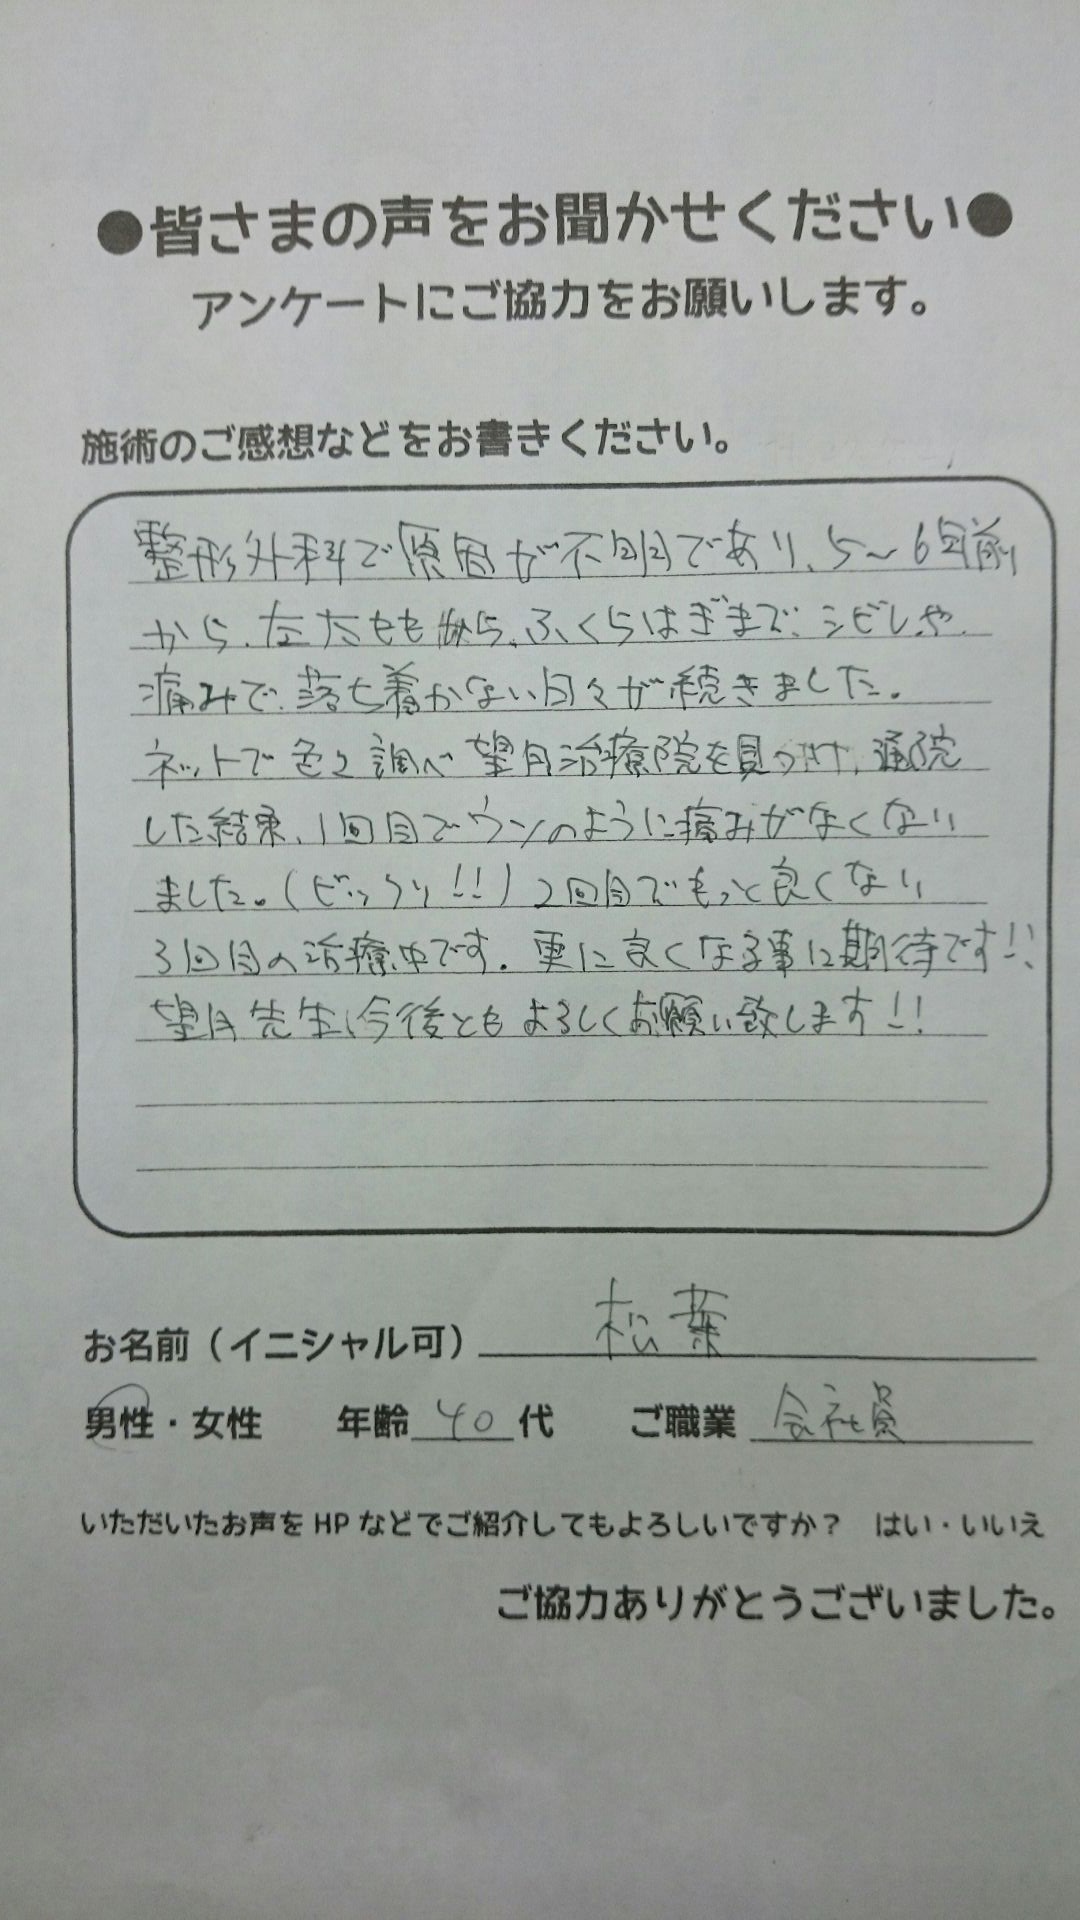 ●皆さまの声をお聞かせください●
アンケートにご協力をお願いします。
施術のご感想などをお書きください。
整形外科で原因が不明であり、5〜6回前
から、左太ももから、ふくらはぎまで、シビレや
痛みで、落ち着かない日々が続きました。
ネットで色々調べ望月治療院を見つけ、通院
した結果、1回目でウソのように痛みがなくない
ました。(ビックリ!!)2回目でもっと良くなり
3回目の治療中です。更に良くなる事に期待です!!
望月先生、今後ともよろしくお願い致します!!
お名前（イニシャル可）松葉
男性・女性 年齢 40 代 ご職業 会社員
いただいたお声を HP などでご紹介してもよろしいですか？ はい・いいえ
ご協力ありがとうございました。